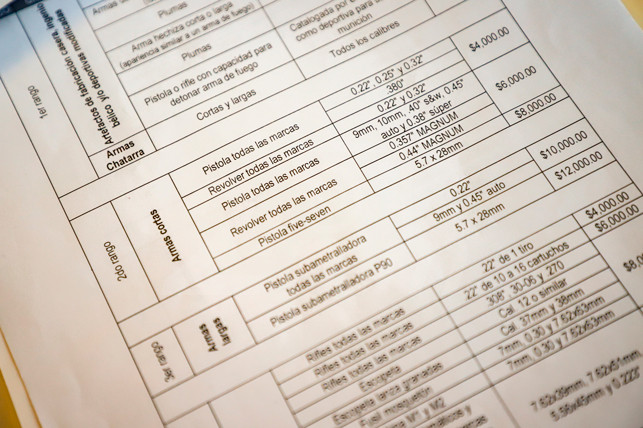 1er rango
Artefactos de fabricación casera, ingenio
bélico y/o deportivas modificadas
Plumas
Arma hechiza corta o larga
(apariencia similar a un arma de fuego)
Plumas
Pistola o rifle con capacidad para
detonar arma de fuego
Catalogada por
como deportiva para
munición
Todos los calibres
Armas
Chatarra
Cortas y largas
$4,000.00
2do rango
Armas cortas
Pistola todas las marcas
0.22", 0.25" y 0.32"
380"
Revolver todas las marcas
0.22" y 0.32"
$6,000.00
Pistola todas las marcas
9mm, 10mm, 40" s&w, 0.45"
auto y 0.38" súper
$8,000.00
Revolver todas las marcas
0.357" MAGNUM
0.44" MAGNUM
Pistola five-seven
5.7 x 28mm
Pistola subametralladora
todas las marcas
0.22"
9mm y 0.45" auto
$10,000.00
Pistola subametralladora P90
5.7 x 28mm
$12,000.00
3er rango
Armas
largas
Rifles todas las marcas
22" de 1 tiro
$4,000.00
Rifles todas las marcas
22" de 10 a 16 cartuchos
$6,000.00
Rifles todas las marcas
308" 30-06 y 270
Escopeta
Cal. 12 o similar
Escopeta lanza granadas
Cal. 37mm y 38mm
Fusil mosquetón
7mm, 0.30 y 7.62x63mm
M1 y M2
7mm, 0.30 y 7.62x63mm
7.62x39mm, 7.62x51mm
5.56x45mm y 0.223"